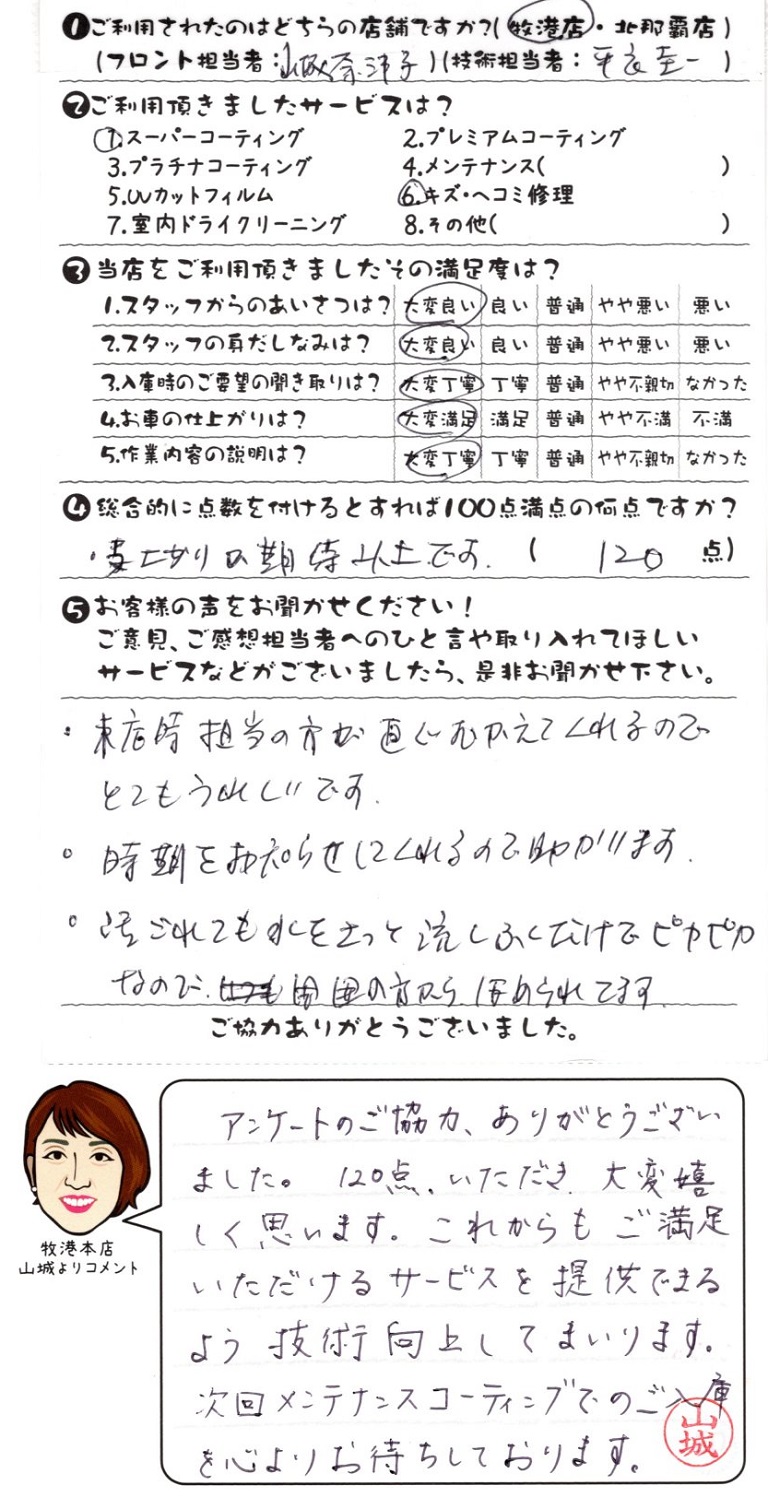 ❶ご利用されたのはどちらの店舗ですか?(牧港店・北那覇店)
(フロント担当者:山城奈津子)(技術担当者:平良圭一)
❷ご利用頂きましたサービスは?
1.スーパーコーティング 2.プレミアムコーティング
3.プラチナコーティング 4.メンテナンス( )
5.UVカットフィルム 6.キズ・ヘコミ修理
7.室内ドライクリーニング 8.その他( )
❸当店をご利用頂きましたその満足度は?
1.スタッフからのあいさつは? 大変良い 良い 普通 やや悪い 悪い
2.スタッフの身だしなみは? 大変良い 良い 普通 やや悪い 悪い
3.入庫時のご要望の聞き取りは? 大変丁寧 丁寧 普通 やや不親切 なかった
4.お車の仕上がりは? 大変満足 満足 普通 やや不満 不満
5.作業内容の説明は? 大変丁寧 丁寧 普通 やや不親切 なかった
❹総合的に点数を付けるとすれば100点満点の何点ですか?
上がりの期待以上です. ( 120 点)
❺お客様の声をお聞かせください!
ご意見、ご感想担当者へのひと言や取り入れてほしい
サービスなどがございましたら、是非お聞かせ下さい。
・来店時担当の方が直ぐむかえてくれるので
とてもうれしいです.
○時期をお知らせしてくれるので助かります.
○ごれても水をさっと流しふくだけでピカピカ
なので、周囲の方からほめられてます.
ご協力ありがとうございました。
アンケートのご協力、ありがとうござい
ました。120点、いただき、大変嬉
しく思います。これからもご満足
いただけるサービスを提供できる
よう技術向上してまいります。
次回メンテナンスコーティングでのご入庫
を心よりお待ちしております。
山城
牧港本店
山城よりコメント